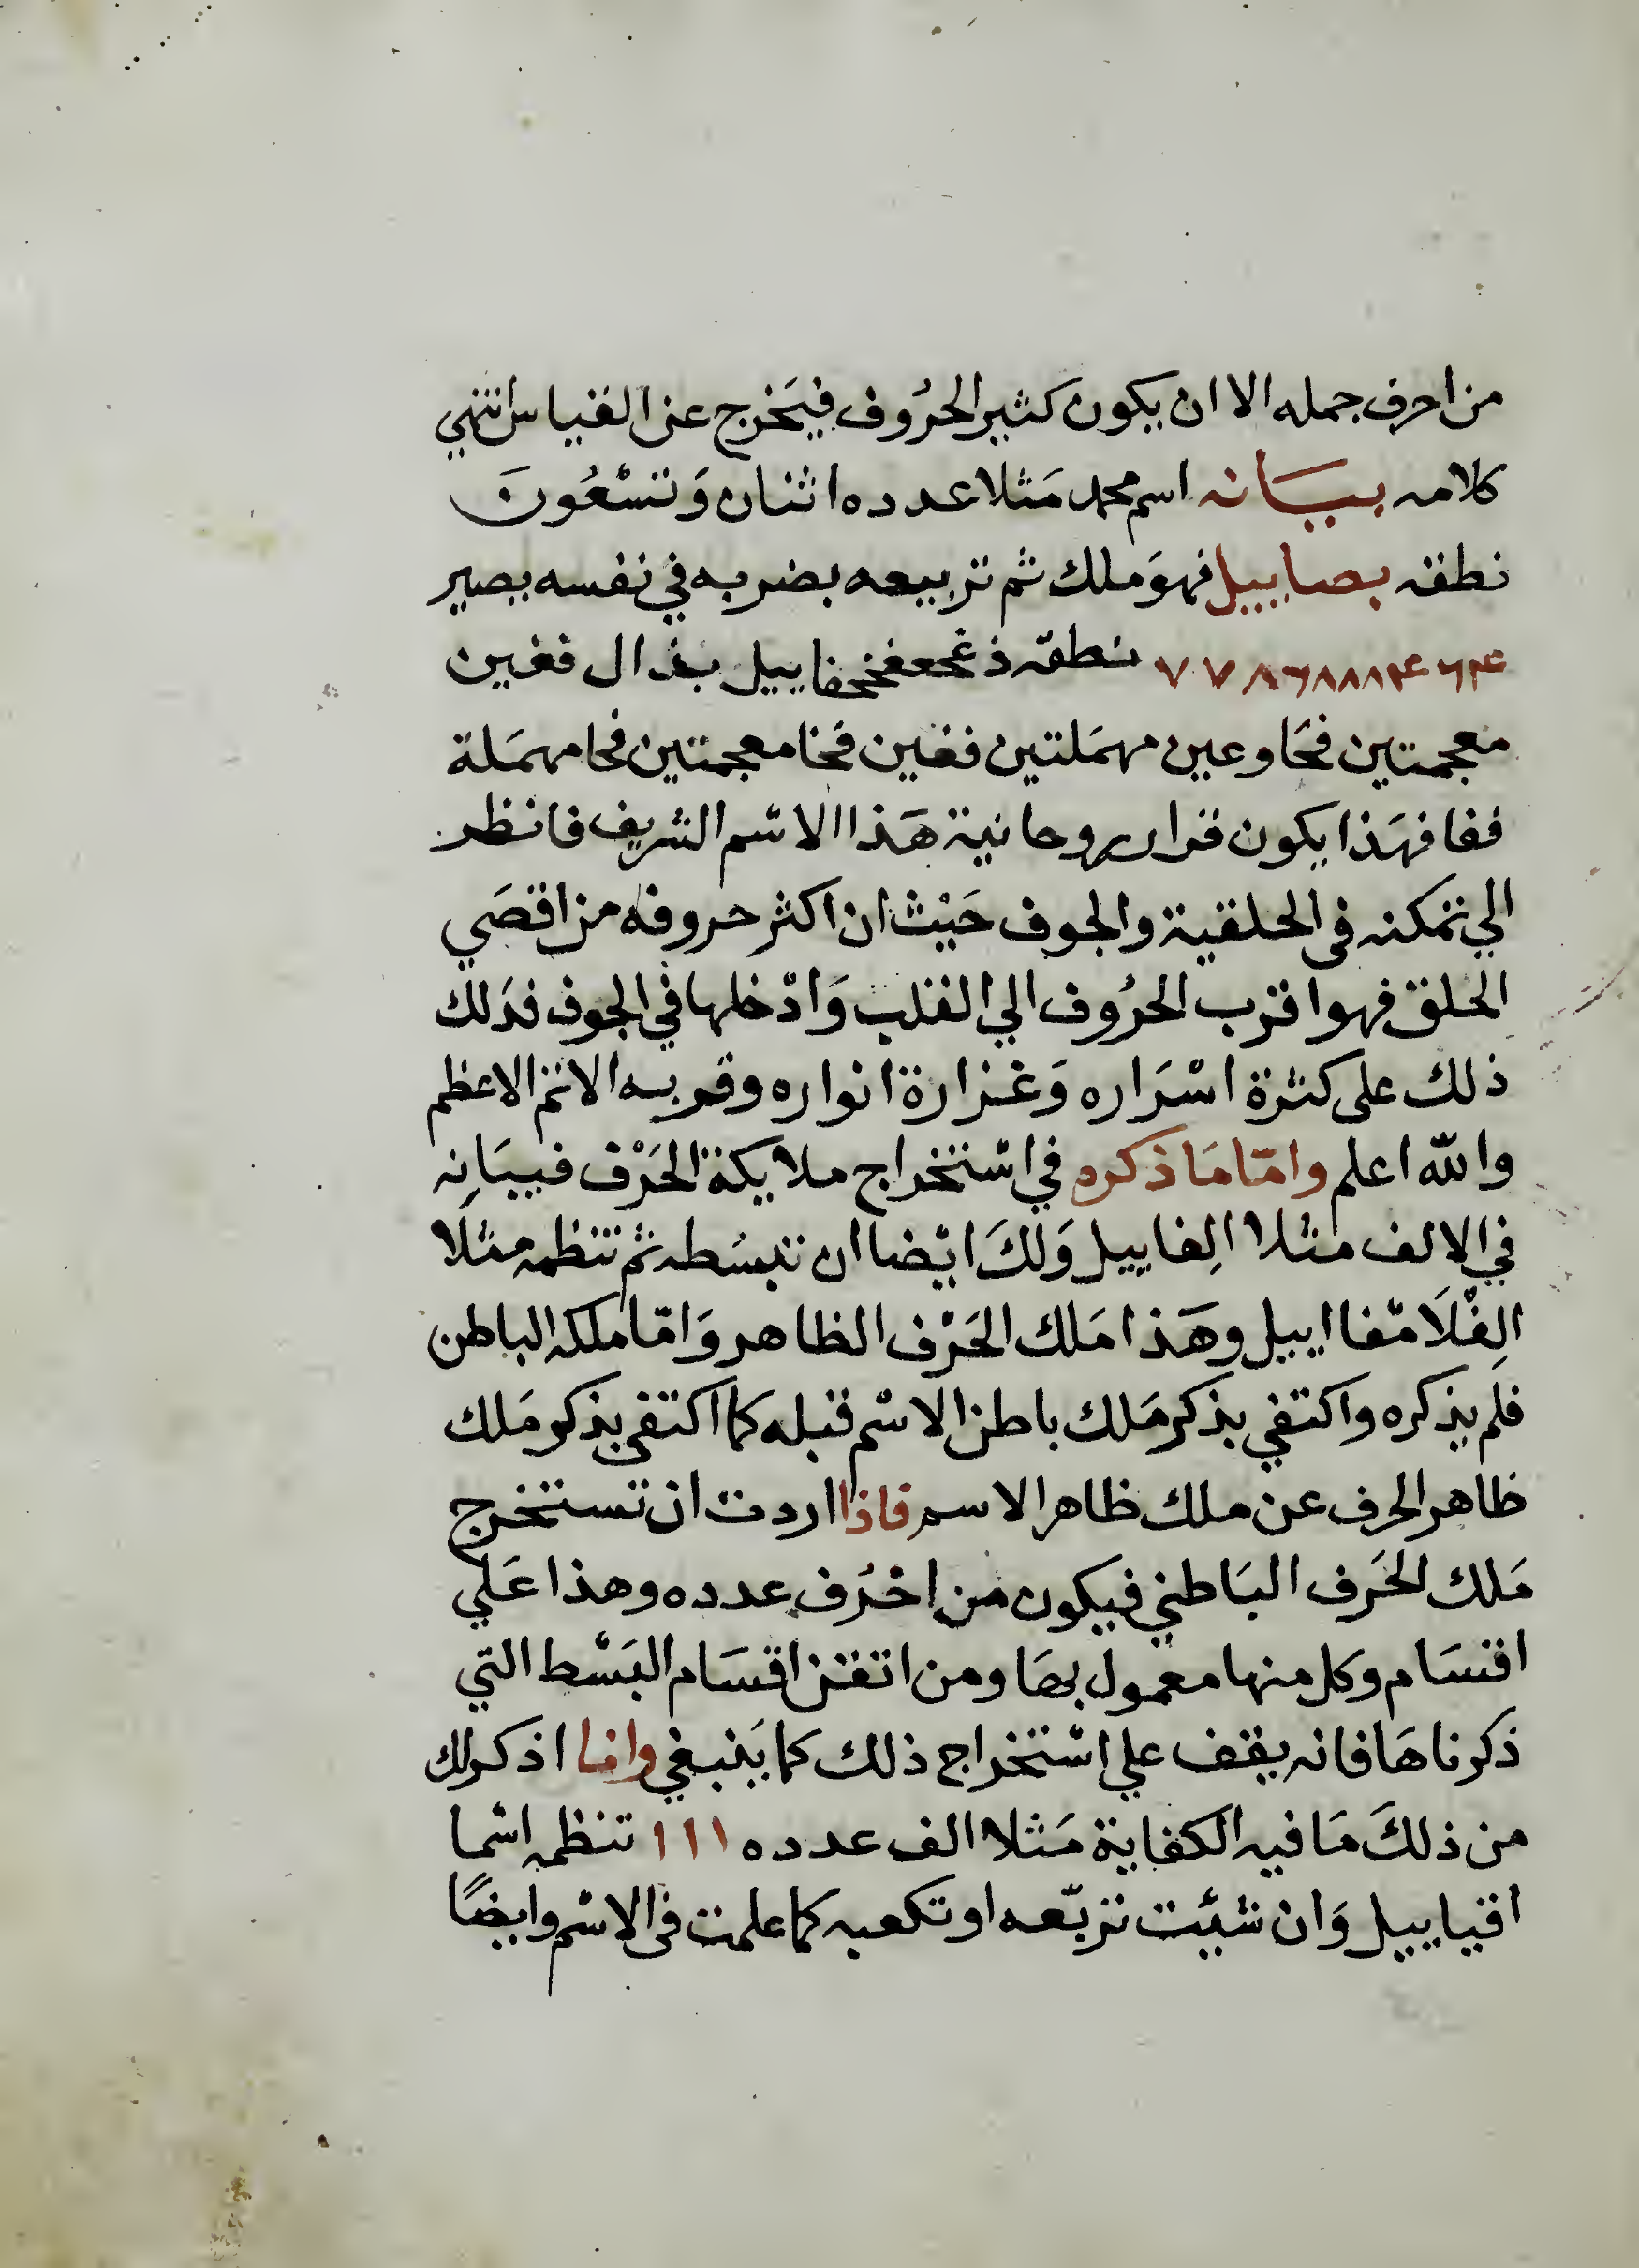 من احرف جمله الا ان يكون كثير الحرُوف فيَخرج عن القياس انتهي
كلامه بيَانه اسم محمد مَثلا عدده اثنان وَتسْعُونَ
نطقه بصاييل فهوَ ملك ثم تربيعه بضربه في نفسه يصير
نطقه ذغحعغخحفاييل بذال فغين
معجمتين فحَا وعين مهمَلتين فغين فخا معجمتين فحا مهمَلة
ففا فهَذا يكون قرار روحانية هَذا الاسْم الشريف فانظر
الي تمكنه في الحلقية والجوف حَيْث ان اكثر حروفه من اقصَي
الحلق فهو اقرب الحرُوف الي القلب وَادْخلها في الجوف فدَلك
ذلك على كثرة اسْرَاره وَغزارة انواره وقربه الاتم الاعظم
والله اعلم وامّا مَا ذكره في اسْتخراج ملايكة الحَرْف فبيَانِه
في الالف مثلا الِفاييل وَلكَ ايْضا ان تبسُطه ثم تنظمه مثلا
الِفْلَامْفااييل وهَذا مَلك الحَرْف الظاهر وَامّا ملكه الباطن
فلم يذكره واكتفي بذكر مَلك باطن الاسْم قبله كما اكتفى بذكر مَلك
ظاهر الحرف عن ملك ظاهر الاسم فاذا اردت ان تستخرج
مَلك الحَرف البَاطني فيكون من احْرُف عدده وهذا عَلي
اقسَام وكل منها معمول بهَا ومن اتقن اقسَام البَسْط التي
ذكرناهَا فانه يقف علي اسْتخراج ذلك كما يَنبغي وانا اذكر لك
من ذلكَ مَا فيه الكفاية مَثلا الف عدده ١١١ تنظمه اسْما
اقياييل وَان شئت تربّعه او تكعبه كما علمت في الاسْم وايضًا